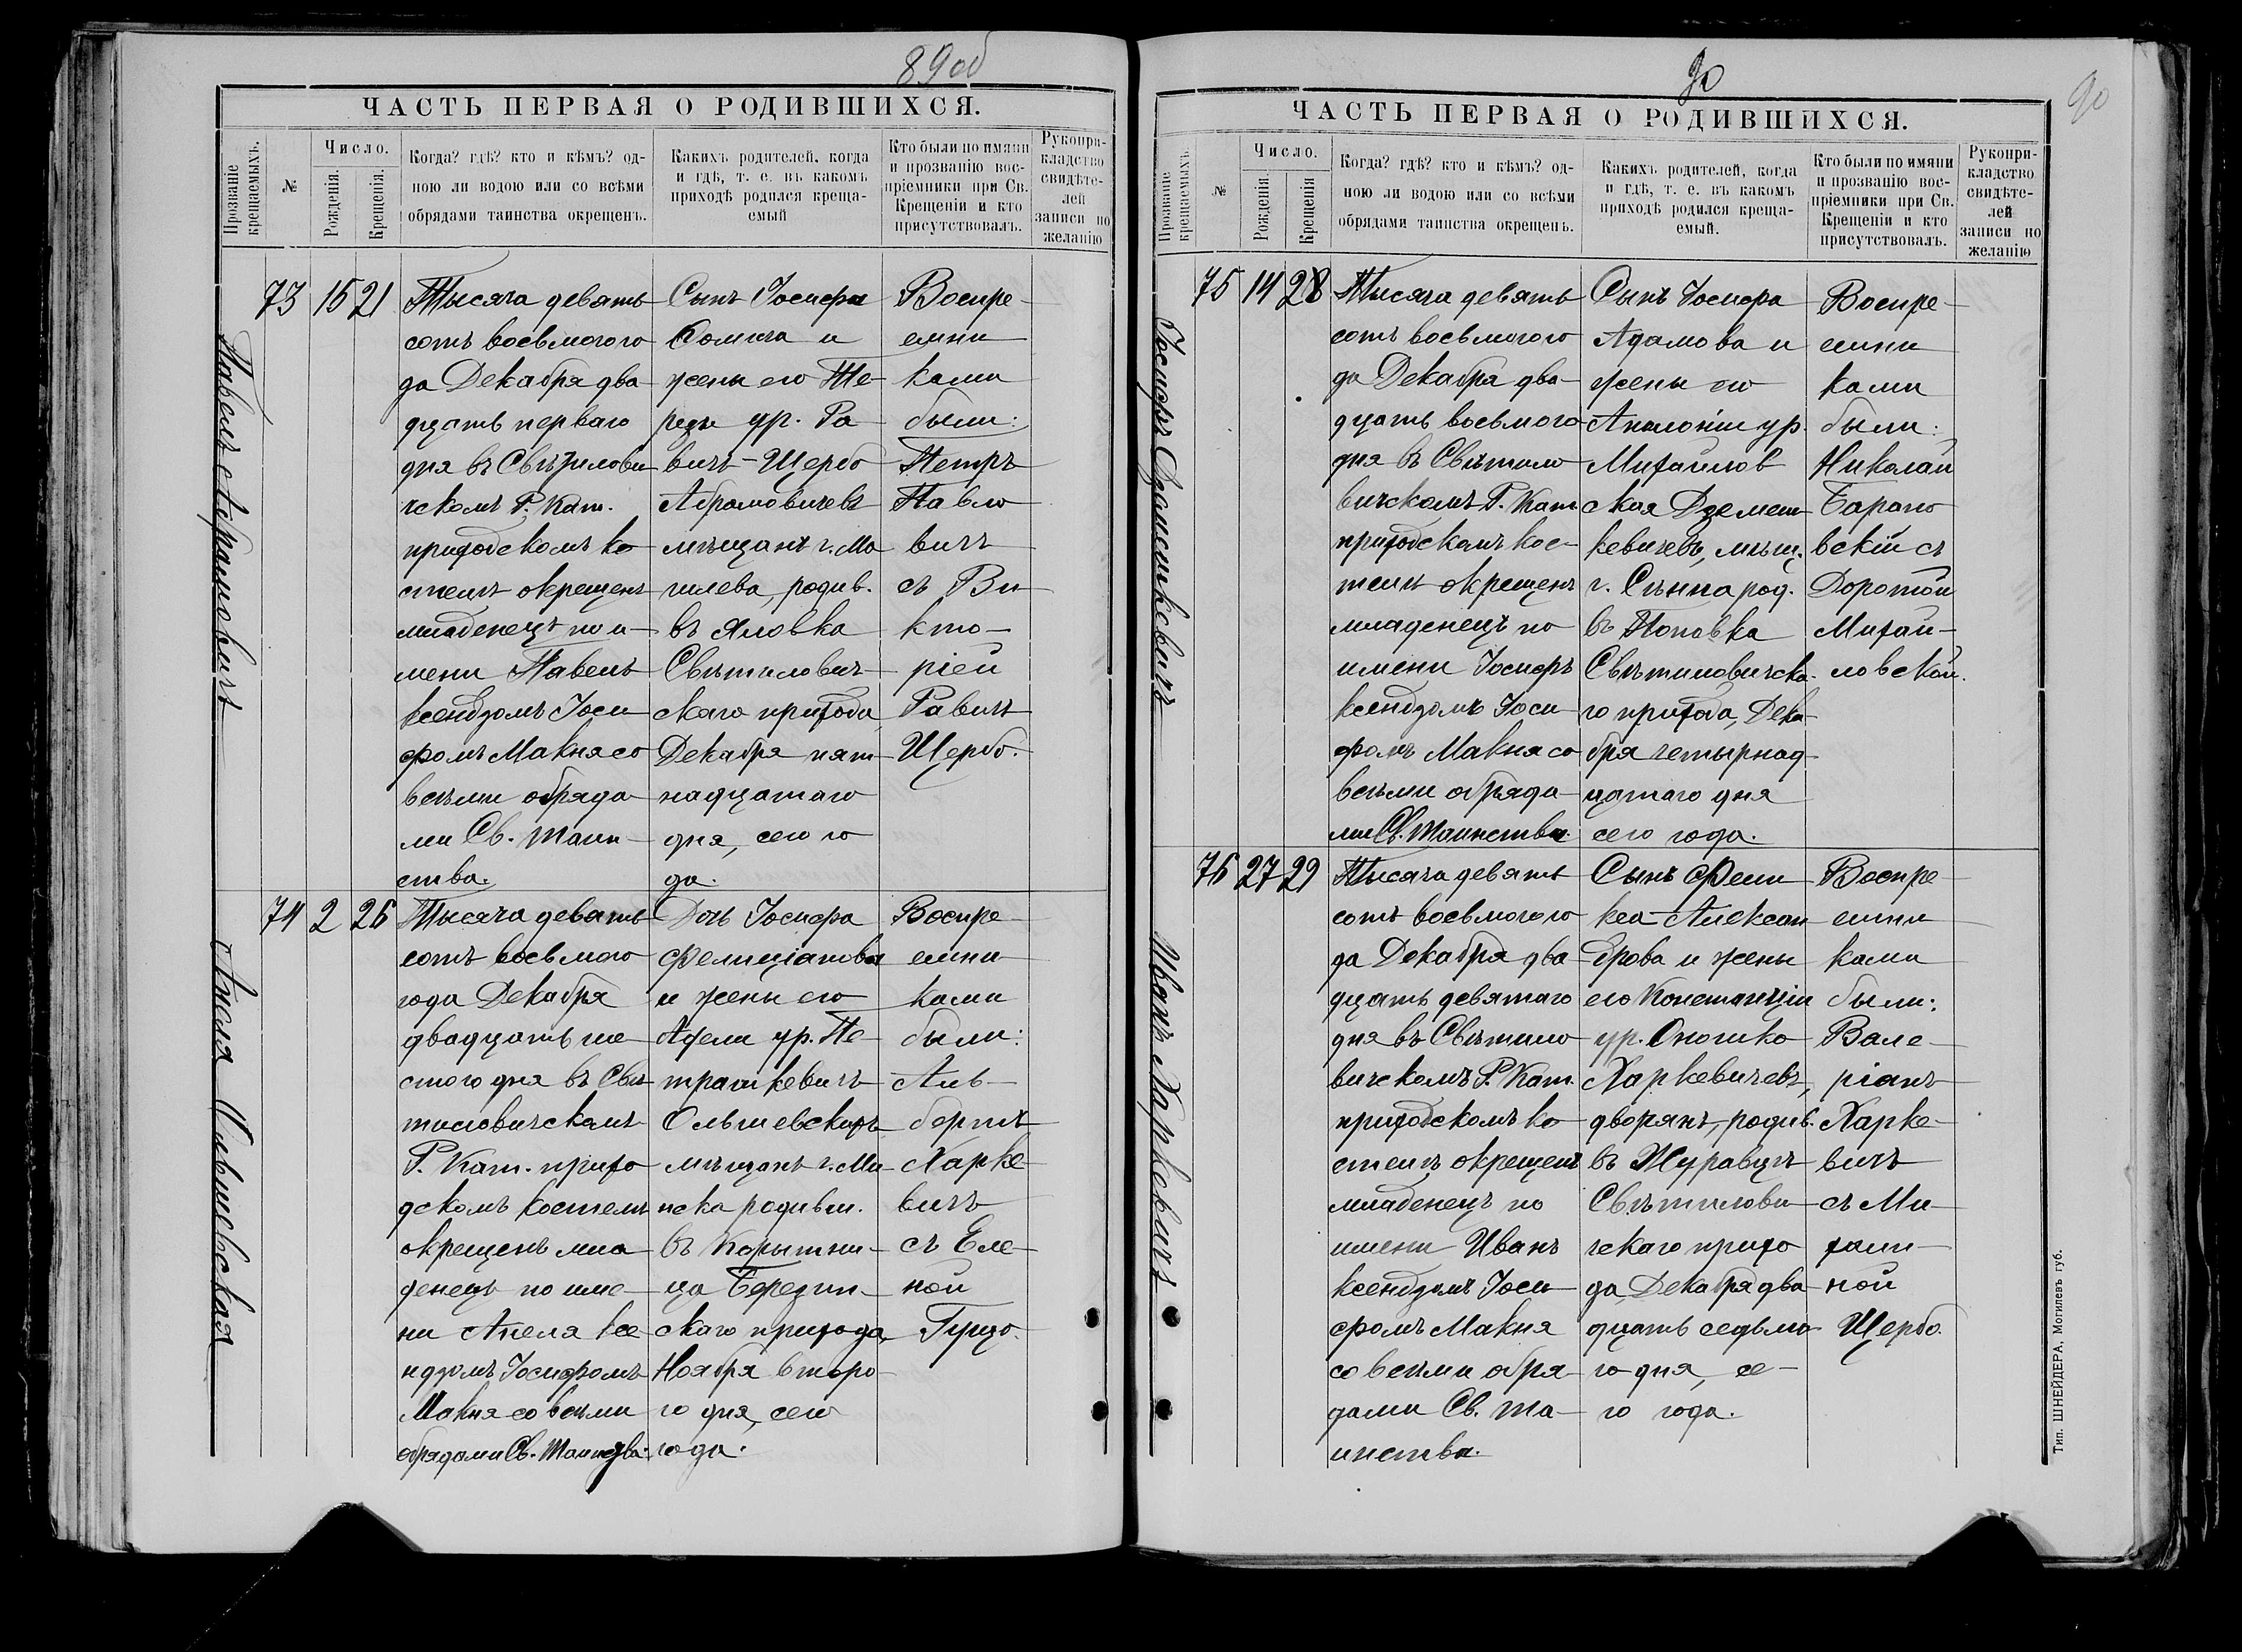 89 об
ЧАСТЬ ПЕРВАЯ О РОДИВШИХСЯ.
Прозваніе крещаемыхъ.
№
Число.
Рожденія.
Крещенія.
Когда? гдѣ? кто и кѣмъ? од-
ною ли водою или со всѣми
обрядами таинства окрещенъ.
Какихъ родителей, когда
и гдѣ, т. е. въ какомъ
приходѣ родился креща-
емый
Кто были по имяни
и прозванію вос-
пріемники при Св.
Крещеніи и кто
присутствовалъ.
Рукопри-
кладство
свидѣте-
лей
записи по
желанію
Павелъ Абрамовичъ
73 15 21
Тысяча девять
сотъ восьмого го
да Декабря два
дцать перваго
дня въ Свѣтилови
чскомъ Р. Кат.
приходскомъ ко
стелѣ окрещенъ
младенецъ по и-
мени Павелъ
ксендзомъ Іоси
фомъ Макня со
всѣми обряда
ми Св. Таин-
ства.
Сынъ Іосифа
Фомича и
жены его Те-
резы ур. Ра
вичъ-Щербо
Абрамовичевъ
мѣщанъ г. Мо
гилева, родив.
въ Яловка
Свѣтилович-
скаго прихода
Декабря пят-
надцатаго
дня, сего го
да.
Воспре-
емни
ками
были:
Петръ
Павло
вичъ
съ Ви-
кто-
ріей
Равичъ
Щербо.
Анеля Ольшевская
74 2 26
Тысяча девять
сотъ восьмого
года Декабря
двадцать ше
стого дня въ Свѣ
тиловичскомъ
Р. Кат. прихо
дскомъ костелѣ
окрещенъ мла
денецъ по име-
ни Анеля ксе
ндзомъ Іосифомъ
Макня со всѣми
обрядами Св. Таинства.
Дочь Іосифа
Фелиціанова
и жены его
Адели ур. Пе-
трашкевичъ
Ольшевскихъ
мѣщанъ г. Ми
нска родивш.
въ Корытни-
ца Березин-
скаго прихода,
Ноября второ-
го дня, сего
года.
Воспре-
емни
ками
были:
Аль-
бертъ
Харке-
вичъ
съ Еле-
ной
Гуцо.
90
90
ЧАСТЬ ПЕРВАЯ О РОДИВШИХСЯ.
Прозваніе крещаемыхъ.
№
Число.
Рожденія.
Крещенія
Когда? гдѣ? кто и кѣмъ? од-
ною ли водою или со всѣми
обрядами таинства окрещенъ.
Какихъ родителей, когда
и гдѣ, т. е. въ какомъ
приходѣ родился креща-
емый.
Кто были по имяни
и прозванію вос-
пріемники при Св.
Крещеніи и кто
присутствовалъ.
Рукопри-
кладство
свидѣте-
лей
записи по
желанію
Іосифъ Дземешкевичъ
75 14 28
Тысяча девять
сотъ восьмого го
да Декабря два-
дцать восьмого
дня въ Свѣтило
вичскомъ Р. Кат
приходскомъ кос-
телѣ окрещенъ
младенецъ по
имени Іосифъ
ксендзомъ Іоси
фомъ Макня со
всѣми обряда-
ми Св. Таинства.
Сынъ Іосифа
Адамова и
жены его
Аполоніи ур.
Михайлов
ская Дземеш
кевичевъ, мѣщ.
г. Сѣнна род.
въ Поповка
Свѣтиловичска-
го прихода, Дека-
бря четырнад-
цатаго дня
сего года.
Воспре-
емни
ками
были:
Николай
Барано
вскій съ
Доротой
Михай-
ловской.
Иванъ Харкевичъ
76 27 29
Тысяча девять
сотъ восьмого го
да Декабря два
дцать девятаго
дня въ Свѣтило
вичскомъ Р. Кат.
приходскомъ ко
стелѣ окрещенъ
младенецъ по
имени Иванъ
ксендзомъ Іоси
фомъ Макня
со всѣми обря-
дами Св. Та-
инства.
Сынъ Фели
кса-Алексан
дрова и жены
его Констанціи
ур. Оношко
Харкевичевъ,
дворянъ, родив.
въ Журавцѣ
Свѣтилови
чскаго прихо
да, Декабря два
дцать седьмо
го дня, се-
го года.
Воспре-
емни
ками
были:
Вале-
ріанъ
Харке-
вичъ
съ Ми-
хали-
ной
Щербо.
Тип. ШНЕЙДЕРА, Могилевъ губ.